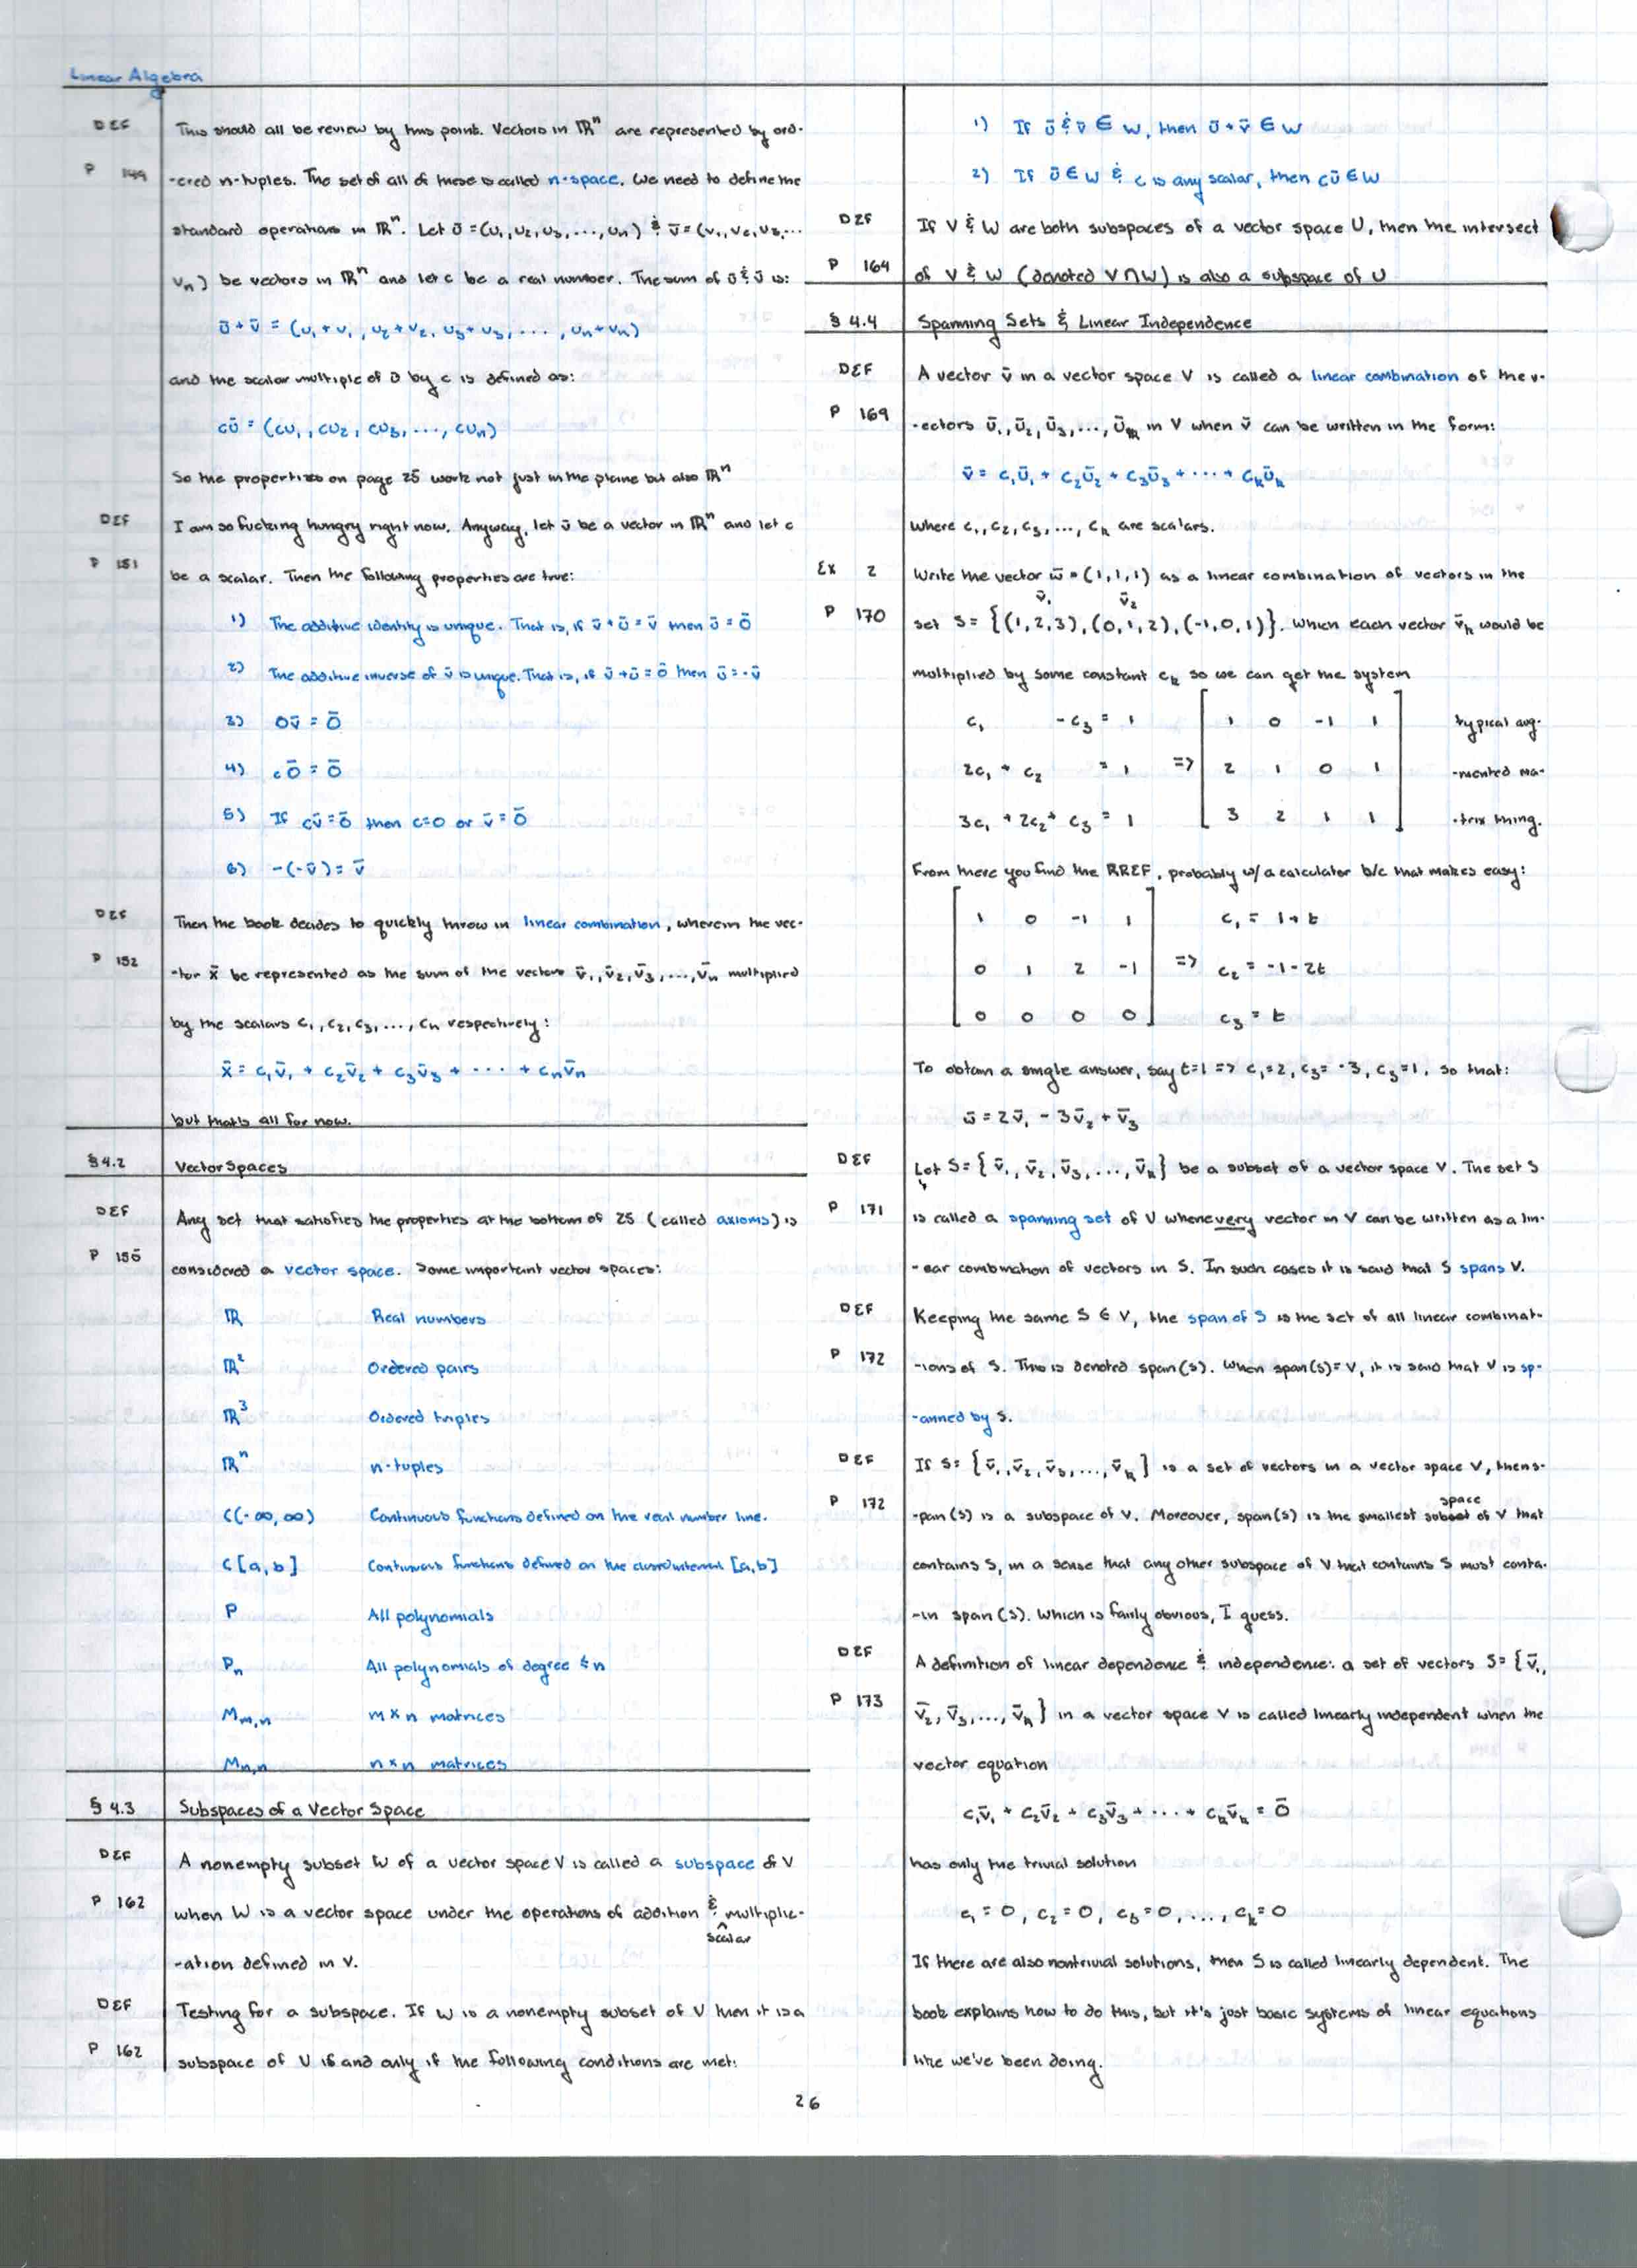 Linear Algebra
DEF This should all be review by this point. Vectors in ℝⁿ are represented by ord-
P 149 -ered n-tuples. The set of all of these is called n-space. We need to define the
standard operations in ℝⁿ. Let ū = (u₁, u₂, u₃, ..., uₙ) & v̄ = (v₁, v₂, v₃, ...
vₙ) be vectors in ℝⁿ and let c be a real number. The sum of ū & v̄ is:
ū + v̄ = (u₁ + v₁, u₂ + v₂, u₃ + v₃, ..., uₙ + vₙ)
and the scalar multiple of ū by c is defined as:
cū = (cu₁, cu₂, cu₃, ..., cuₙ)
So the properties on page 25 work not just in the plane but also ℝⁿ
DEF I am so fucking hungry right now. Anyway, let v̄ be a vector in ℝⁿ and let c
P 151 be a scalar. Then the following properties are true:
1) The additive identity is unique. That is, if v̄ + ū = v̄ then ū = 0̄
2) The additive inverse of v̄ is unique. That is, if v̄ + ū = 0̄ then ū = -v̄
3) 0v̄ = 0̄
4) c0̄ = 0̄
5) If cv̄ = 0̄ then c=0 or v̄ = 0̄
6) -(-v̄) = v̄
DEF Then the book decides to quickly throw in linear combination, wherein the vec-
P 152 -tor x̄ be represented as the sum of the vectors v̄₁, v̄₂, v̄₃, ..., v̄ₙ multiplied
by the scalars c₁, c₂, c₃, ..., cₙ respectively:
x̄ = c₁v̄₁ + c₂v̄₂ + c₃v̄₃ + ... + cₙv̄ₙ
but that's all for now.
§4.2 Vector Spaces
DEF Any set that satisfies the properties at the bottom of 25 (called axioms) is
P 155 considered a vector space. Some important vector spaces:
ℝ Real numbers
ℝ² Ordered pairs
ℝ³ Ordered triples
ℝⁿ n-tuples
C(-∞, ∞) Continuous functions defined on the real number line.
C[a, b] Continuous functions defined on the closed interval [a, b]
P All polynomials
Pₙ All polynomials of degree ≤ n
Mₘ,ₙ m × n matrices
Mₙ,ₙ n × n matrices
§ 4.3 Subspaces of a Vector Space
DEF A nonempty subset W of a vector space V is called a subspace of V
P 162 when W is a vector space under the operations of addition & scalar multiplic-
-ation defined in V.
DEF Testing for a subspace. If W is a nonempty subset of V then it is a
P 162 subspace of V if and only if the following conditions are met:
1) If ū & v̄ ∈ W, then ū + v̄ ∈ W
2) If ū ∈ W & c is any scalar, then cū ∈ W
DEF If V & W are both subspaces of a vector space U, then the intersect
P 164 of V & W (denoted V ∩ W) is also a subspace of U
§ 4.4 Spanning Sets & Linear Independence
DEF A vector v̄ in a vector space V is called a linear combination of the v-
P 169 -ectors ū₁, ū₂, ū₃, ..., ūₖ in V when v̄ can be written in the form:
v̄ = c₁ū₁ + c₂ū₂ + c₃ū₃ + ... + cₖūₖ
Where c₁, c₂, c₃, ..., cₖ are scalars.
Ex 2 Write the vector w̄ = (1, 1, 1) as a linear combination of vectors in the
v̄₁ v̄₂
P 170 set S = {(1, 2, 3), (0, 1, 2), (-1, 0, 1)}. Which each vector v̄ₖ would be
multiplied by some constant cₖ so we can get the system
c₁ - c₃ = 1 [ 1 0 -1 1 ] typical aug-
2c₁ + c₂ = 1 => [ 2 1 0 1 ] -mented ma-
3c₁ + 2c₂ + c₃ = 1 [ 3 2 1 1 ] -trix thing.
From there you find the RREF, probably w/ a calculator b/c that makes easy:
[ 1 0 -1 1 ] c₁ = 1 + t
[ 0 1 2 -1 ] => c₂ = -1 - 2t
[ 0 0 0 0 ] c₃ = t
To obtain a single answer, say t=1 => c₁=2, c₃= -3, c₃=1, so that:
w̄ = 2v̄₁ - 3v̄₂ + v̄₃
DEF Let S = {v̄₁, v̄₂, v̄₃, ..., v̄ₖ} be a subset of a vector space V. The set S
P 171 is called a spanning set of V when every vector in V can be written as a lin-
-ear combination of vectors in S. In such cases it is said that S spans V.
DEF Keeping the same S ∈ V, the span of S is the set of all linear combinat-
P 172 -ions of S. This is denoted span(S). When span(S) = V, it is said that V is sp-
-anned by S.
DEF If S = {v̄₁, v̄₂, v̄₃, ..., v̄ₖ} is a set of vectors in a vector space V, then s-
P 172 -pan(S) is a subspace of V. Moreover, span(S) is the smallest subspace of V that
contains S, in a sense that any other subspace of V that contains S must conta-
-in span(S). Which is fairly obvious, I guess.
DEF A definition of linear dependence & independence: a set of vectors S = {v̄₁,
P 173 v̄₂, v̄₃, ..., v̄ₖ} in a vector space V is called linearly independent when the
vector equation
c₁v̄₁ + c₂v̄₂ + c₃v̄₃ + ... + cₖv̄ₖ = 0̄
has only the trivial solution
c₁ = 0, c₂ = 0, c₃ = 0, ..., cₖ = 0
If there are also nontrivial solutions, then S is called linearly dependent. The
book explains how to do this, but it's just basic systems of linear equations
like we've been doing.
26